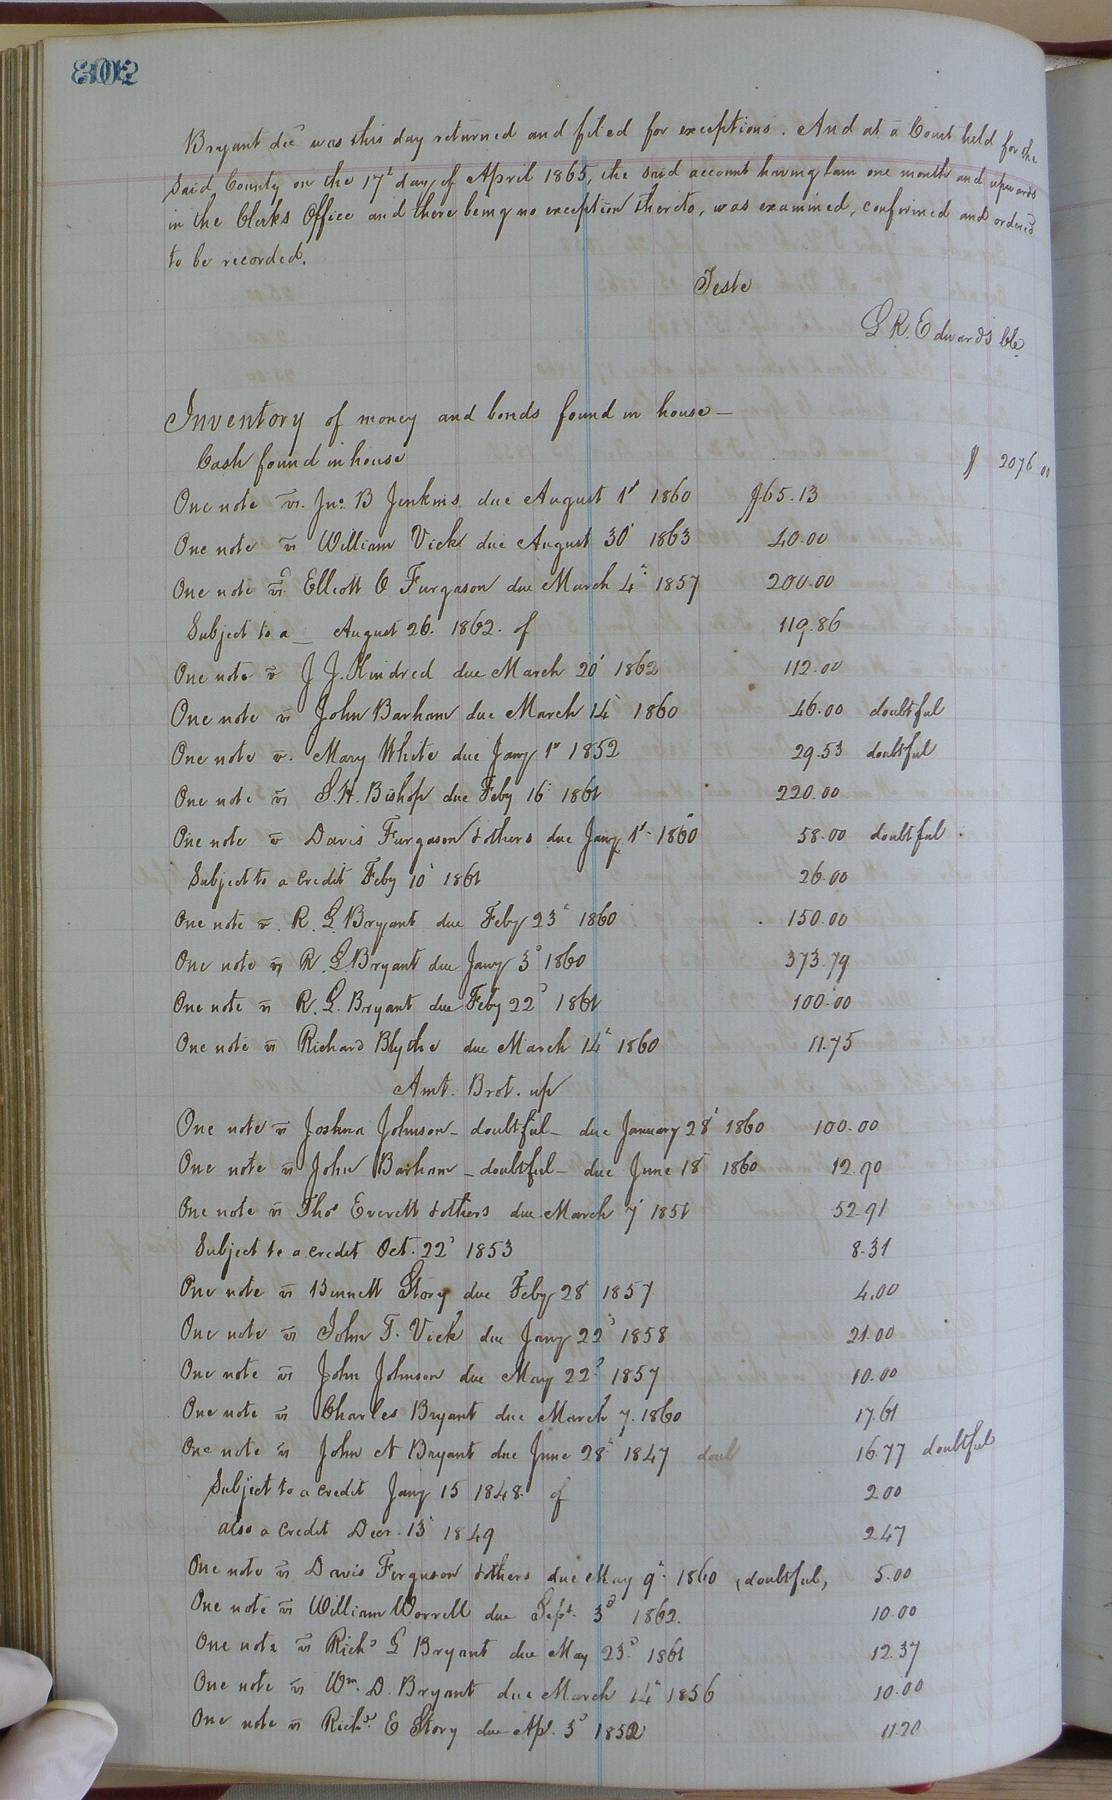 302
Bryant decd was this day returned and filed for exceptions. And at a Court held for the
said County on the 17t day of April 1865, the said account having lain one month and upwards
in the Clerks Office and there being no exception thereto, was examined, confirmed and ordered
to be recorded.
Teste
L R. Edwards Clk.
Inventory of money and bonds found in house —
Cash found in house $ 2076 00
One note vs. Jno. B Jenkins due August 1st 1860 $65.13
One note vs William Vick due August 30 1863 40.00
One note vs Elliott C Furgason due March 4th 1857 200.00
Subject to a _ August 26. 1862. of 119.86
One note vs J J. Kindred due March 20 1862 112.00
One note vs John Barham due March 14 1860 46.00 doubtful
One note vs. Mary White due Jany 1st 1852 29.53 doubtful
One note vs S. H. Bishop due Feby 16 1861 220.00
One note vs Davis Furgason & others due Jany 1st 1860 58.00 doubtful
Subject to a credit Feby 10 1861 26.00
One note vs. R. L. Bryant due Feby 23d 1860 150.00
One note vs R L Bryant due Jany 3d 1860 373.79
One note vs R. L. Bryant due Feby 22d 1861 100.00
One note vs Richard Blythe due March 14th 1860 11.75
Amt. Brot. up
One note vs Joshua Johnson - doubtful - due January 28 1860 100.00
One note vs John Barham - doubtful - due June 18 1860 12.90
One note vs Thos Everett & others due March 7 1851 52.91
Subject to a credit Oct. 22d 1853 8.31
One note vs Bennett Story due Feby 28 1857 4.00
One note vs John T. Vick due Jany 22d 1858 21.00
One note vs John Johnson due May 22d 1857 10.00
One note vs Charles Bryant due March 7. 1860 17.61
One note vs John N Bryant due June 28th 1847 doub 16.77 doubtful
Subject to a credit Jany 15 1848 of 2.00
also a credit Decr. 13 1849 2.47
One note vs Davis Ferguson & others due May 9th 1860 (doubtful, 5.00
One note vs William Worrell due Sept. 3d 1862. 10.00
One note vs Richd L Bryant due May 23d 1861 12.37
One note vs Wm. D. Bryant due March 14th 1856 10.00
One note vs Richd. E Story due Ap. 3d 1852 11.20